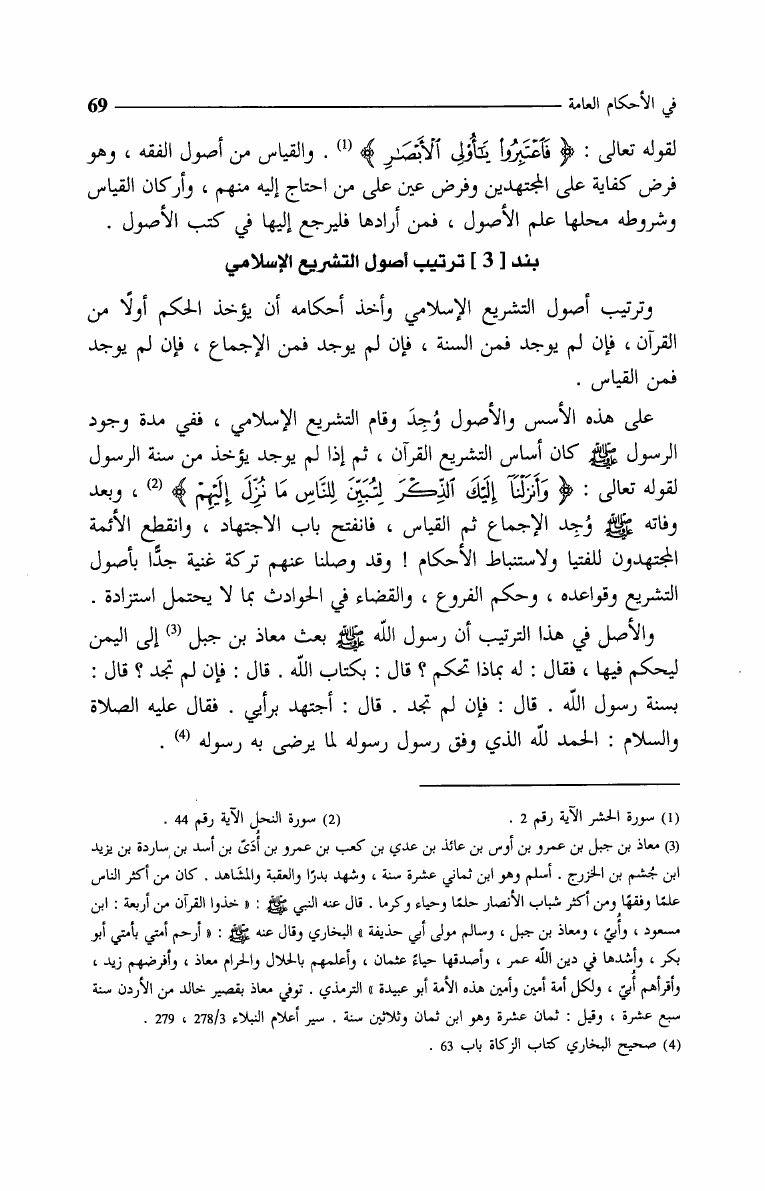 في الأحكام العامة 69
لقوله تعالى : ﴿ فَاعْتَبِرُوا يَا أُولِي الْأَبْصَارِ ﴾ (1) . والقياس من أصول الفقه ، وهو
فرض كفاية على المجتهدين وفرض عين على من احتاج إليه منهم ، وأركان القياس
وشروطه محلها علم الأصول ، فمن أرادها فليرجع إليها في كتب الأصول .
بند [ 3 ] ترتيب أصول التشريع الإسلامي
وترتيب أصول التشريع الإسلامي وأخذ أحكامه أن يؤخذ الحكم أولًا من
القرآن ، فإن لم يوجد فمن السنة ، فإن لم يوجد فمن الإجماع ، فإن لم يوجد
فمن القياس .
على هذه الأسس والأصول وُجِدَ وقام التشريع الإسلامي ، ففي مدة وجود
الرسول ﷺ كان أساس التشريع القرآن ، ثم إذا لم يوجد يؤخذ من سنة الرسول
لقوله تعالى : ﴿ وَأَنزَلْنَا إِلَيْكَ الذِّكْرَ لِتُبَيِّنَ لِلنَّاسِ مَا نُزِّلَ إِلَيْهِمْ ﴾ (2) ، وبعد
وفاته ﷺ وُجِد الإجماع ثم القياس ، فانفتح باب الاجتهاد ، وانقطع الأئمة
المجتهدون للفتيا ولاستنباط الأحكام ! وقد وصلنا عنهم تركة غنية جدًّا بأصول
التشريع وقواعده ، وحكم الفروع ، والقضاء في الحوادث بما لا يحتمل استزادة .
والأصل في هذا الترتيب أن رسول الله ﷺ بعث معاذ بن جبل (3) إلى اليمن
ليحكم فيها ، فقال : له بماذا تحكم ؟ قال : بكتاب الله . قال : فإن لم تجد ؟ قال :
بسنة رسول الله . قال : فإن لم تجد . قال : أجتهد برأيي . فقال عليه الصلاة
والسلام : الحمد لله الذي وفق رسول رسوله لما يرضى به رسوله (4) .
(1) سورة الحشر الآية رقم 2 . (2) سورة النحل الآية رقم 44 .
(3) معاذ بن جبل بن عمرو بن أوس بن عائذ بن عدي بن كعب بن عمرو بن أُدَىّ بن أسد بن ساردة بن يزيد
ابن جُشم بن الخزرج . أسلم وهو ابن ثماني عشرة سنة ، وشهد بدرًا والعقبة والمشاهد . كان من أكثر الناس
علمًا وفقهًا ومن أكثر شباب الأنصار حلمًا وحياء وكرما . قال عنه النبي ﷺ : « خذوا القرآن من أربعة : ابن
مسعود ، وأُبيّ ، ومعاذ بن جبل ، وسالم مولى أبي حذيفة » البخاري وقال عنه ﷺ : « أرحم أمتي بأمتي أبو
بكر ، وأشدها في دين الله عمر ، وأصدقها حياءً عثمان ، وأعلمهم بالحلال والحرام معاذ ، وأفرضهم زيد ،
وأقرأهم أُبيّ ، ولكل أمة أمين وأمين هذه الأمة أبو عبيدة » الترمذي . توفي معاذ بقصير خالد من الأردن سنة
سبع عشرة ، وقيل : ثمان عشرة وهو ابن ثمان وثلاثين سنة . سير أعلام النبلاء 278/3 ، 279 .
(4) صحيح البخاري كتاب الزكاة باب 63 .